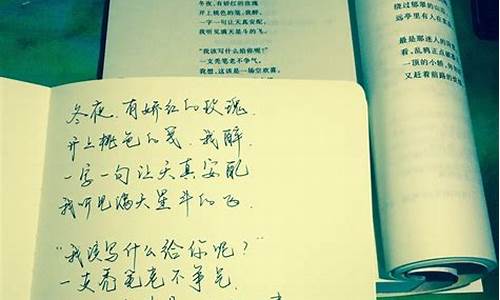 冬夜，有娇红的玫瑰
开上桃色的笺，我醉，
一字一句让天真安配，
我听见满天星斗的飞。
“我该写什么给你呢？”
一支秃笔老不争气，
我想，这该是一场空欢喜。
绕过郁郁的山
远亭里有人在
最是那迷人的
看，乱鸦正点破
一顶的小轿，
又赶着前路的
冬夜，有娇红的玫瑰
开上桃色的笺，我醉，
一字一句让天真安配
我听见满天星斗的飞．
“我该写什么给你呢？”
一支秃笔老不争气．